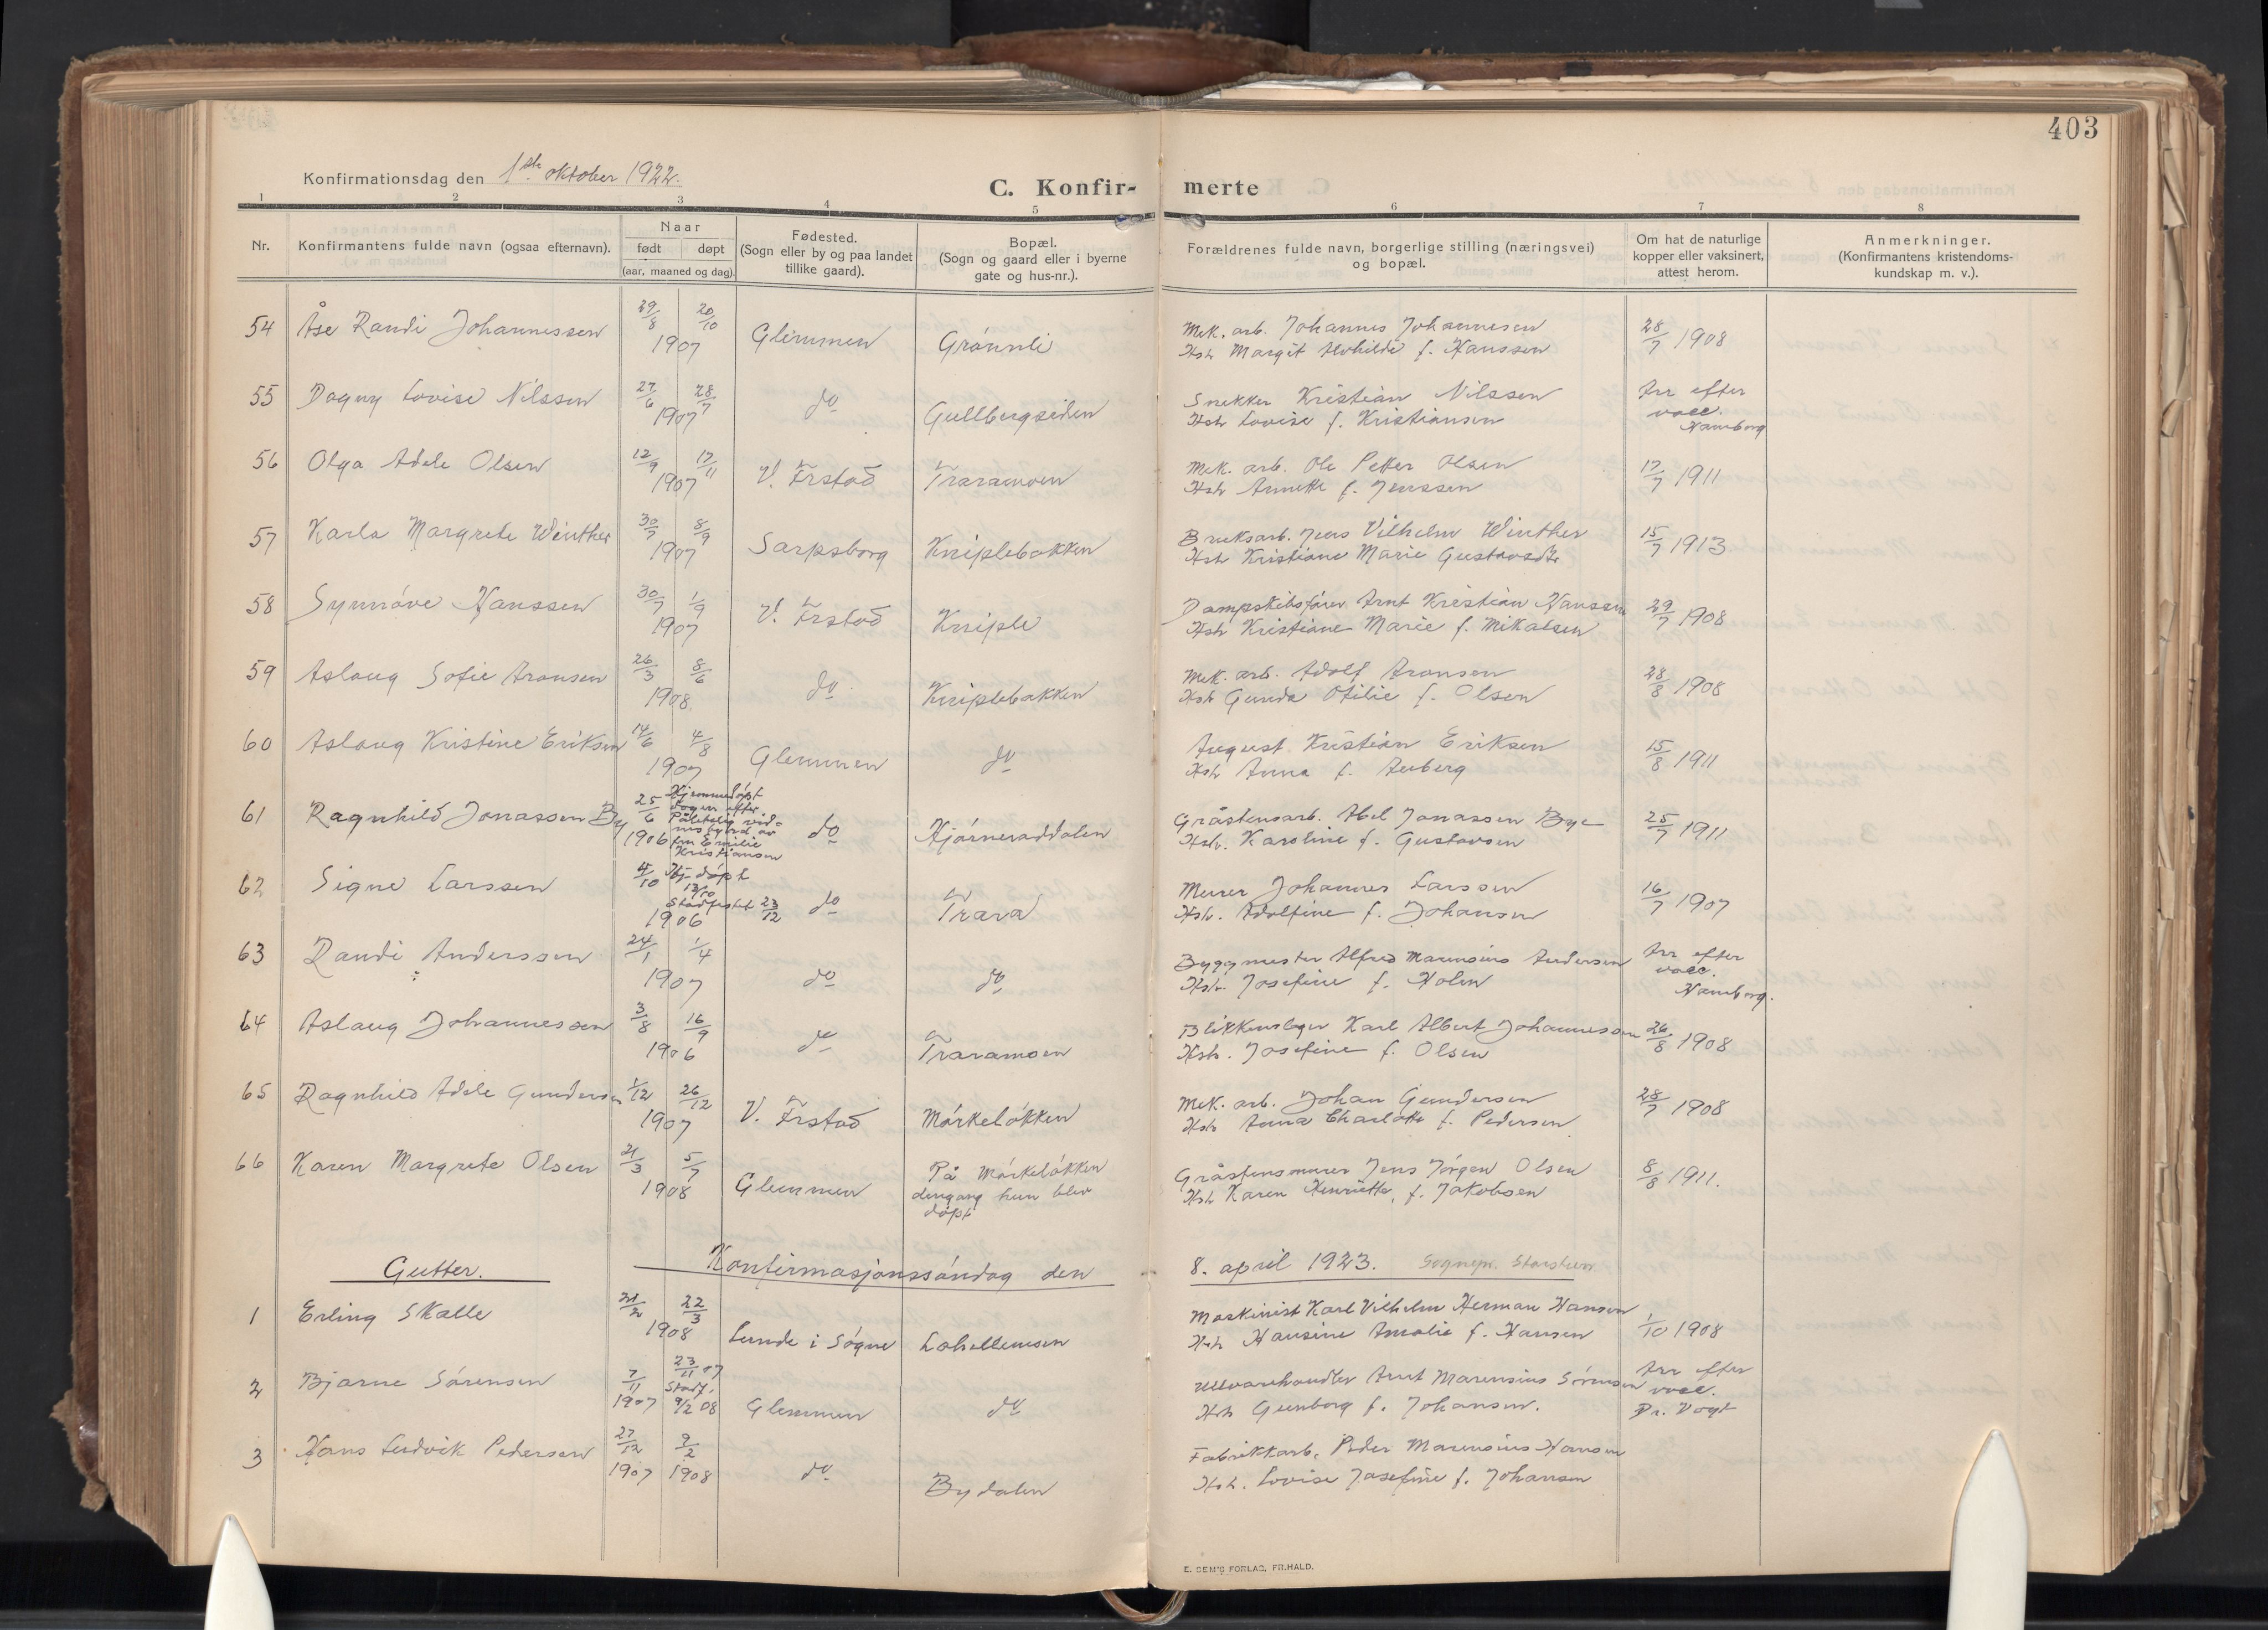 403
Konfirmationsdag den 1ste oktober 1922.
C. Konfir- merte
1 2 3 4 5 6 7 8
Nr. Konfirmantens fulde navn (ogsaa efternavn). Naar født døpt (aar, maaned og dag). Fødested. (Sogn eller by og paa landet tillike gaard). Bopæl. (Sogn og gaard eller i byerne gate og hus-nr.). Forældrenes fulde navn, borgerlige stilling (næringsvei) og bopæl. Om hat de naturlige kopper eller vaksinert, attest herom. Anmerkninger. (Konfirmantens kristendoms-kundskap m. v.).
54 Åse Randi Johannessen 29/8 20/10 1907 Glemmen Grønnli Mek. arb. Johannes Johannesen 28/7 1908
Hstr Margit f. Hanssen
55 Dagny Lovise Nilssen 27/6 28/7 1907 do Gullbergseiden Snekker Kristian Nilssen Arr efter vacc. Hamborg
Hstr Lovise f. Kristiansen
56 Olga Adele Olsen 12/9 17/11 1907 V. Frstad Traramoen Mek. arb. Ole Petter Olsen 17/7 1911
Hstr Annette f. Jenssen
57 Karla Margrete Winther 30/7 8/9 1907 Sarpsborg Kniplebakken Bruksarb. Jens Vilhelm Winther 15/7 1913
Hstr Kristiane Marie Gustavsdtr
58 Synnøve Hanssen 30/7 1/9 1907 V. Frstad Kniple Dampskibsfører Arnt Kristian Hanssen 29/7 1908
Hstr Kristiane Marie f. Mikalsen
59 Aslaug Sofie Aronsen 26/3 8/6 1908 do Kniplebakken Mek. arb. Adolf Aronsen 28/8 1908
Hstr Gunda Otilie f. Olsen
60 Aslaug Kristine Eriksen 14/6 4/8 1907 Glemmen do August Kristian Eriksen 15/8 1911
Hstr Anna f. Auberg
61 Ragnhild Jonassen By 25/6 1906 Hjemmedøpt dagen efter. Pålitelig vidnesbyrd av fru Emilie Kristiansen do Hjørneraddalen Gråstensarb. Abel Jonassen Bye 25/7 1911
Hstr. Karoline f. Gustavsen
62 Signe Larssen 4/10 Hj. døpt 13/10 Stadfestet 23/12 1906 do Trara Murer Johannes Larssen 16/7 1907
Hstr. Adolfine f. Johansen
63 Randi Anderssen 24/1 1/4 1907 do do Byggmester Alfred Marensius Andersen Arr efter vacc. Hamborg.
Hstr. Josefine f. Holm
64 Aslaug Johannessen 3/8 16/9 1906 do Traramoen Blikkenslager Karl Albert Johannessen 26/8 1908
Hstr. Josefine f. Olsen
65 Ragnhild Adele Gundersen 1/12 26/12 1907 V. Frstad Mørkeløkken Mek. arb. Johan Gundersen 28/7 1908
Hstr Anna Charlotte f. Pedersen
66 Karen Margrete Olsen 21/3 5/7 1908 Glemmen På Mørkeløkken dengang hun blev døpt Gråstensmurer Jens Jørgen Olsen 8/8 1911.
Hstr Karen Henriette, f. Jakobsen
Gutter. Konfirmasjonssøndag den 8. april 1923. Sognepr.
1 Erling Skalle 21/2 22/3 1908 Lunde i Søgne Lahellemoen Maskinist Karl Vilhelm Herman Hansen 1/10 1908
Hstr Hansine Amalie f. Hansen
2 Bjarne Sørensen 7/11 1907 23/11 07 Stadf. 9/2 08 Glemmen do Ullvarehandler Arnt Marensius Sørensen Arr efter vacc. Dr. Vogt
Hstr Gunborg f. Johansen.
3 Hans Ludvik Pedersen 27/12 1907 9/2 1908 do Bydalen Fabrikkarb. Peder Marensius Hansen
Hstr. Lovise Josefine f. Johansen
E. SEM'S FORLAG, FR.HALD.